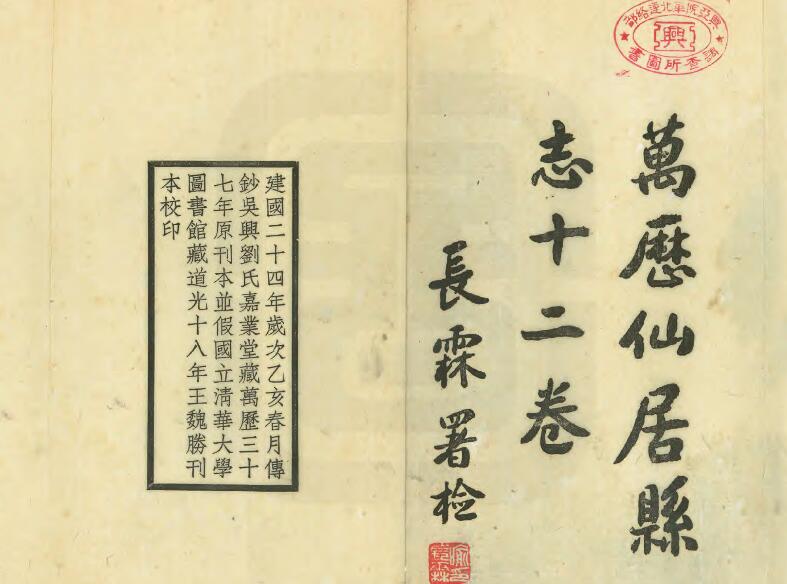 興亞院華北連絡部
調查所圖書
興
萬歷仙居縣
志十二卷
長霖署檢
喻印
長霖
建國二十四年歲次乙亥春月傳
鈔吳興劉氏嘉業堂藏萬歷三十
七年原刊本並假國立清華大學
圖書館藏道光十八年王魏勝刊
本校印